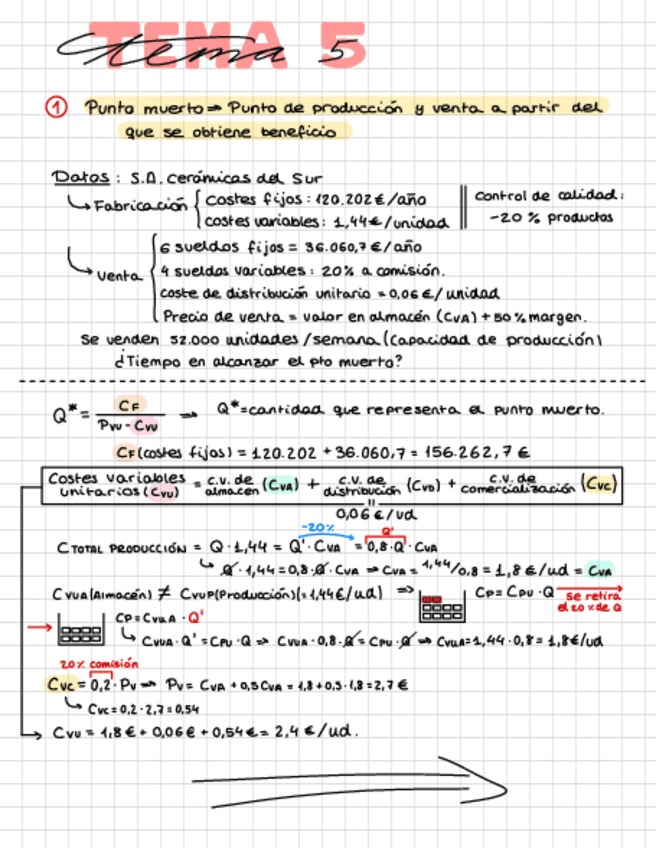 TEMA 5
tema 5
① Punto muerto ⇒ Punto de producción y venta a partir del
que se obtiene beneficio
Datos: S.A. cerámicas del Sur
Fabricación { Costes fijos: 120.202€/año
costes variables: 1,44€/unidad
control de calidad:
-20% productos
Venta { 6 sueldos fijos = 36.060,7€/año
4 sueldos variables: 20% a comisión.
coste de distribución unitario = 0,06€/unidad
Precio de venta = valor en almacén (CVA) + 50% margen.
Se venden 52.000 unidades/semana (capacidad de producción)
¿Tiempo en alcanzar el pto muerto?
Q* = CF / (PVU - CVU) → Q* = cantidad que representa el punto muerto.
CF (costes fijos) = 120.202 + 36.060,7 = 156.262,7€
Costes variables unitarios (CVU) = c.v. de almacen (CVA) + c.v. de distribución (CVD) + c.v. de comercialización (CVC)
=
0,06€/ud
-20% Q'
CTOTAL PRODUCCIÓN = Q · 1,44 = Q' · CVA = 0,8 · Q · CVA
Q · 1,44 = 0,8 · Q · CVA ⇒ CVA = 1,44/0,8 = 1,8€/ud = CVA
CVUA (Almacén) ≠ CVUP (Producción) (= 1,44€/ud) ⇒ CP = CPU · Q → se retira
el 20% de Q
CP = CVUA · Q'
CVUA · Q' = CPU · Q ⇒ CVUA · 0,8 · Q = CPU · Q ⇒ CVUA = 1,44 · 0,8 = 1,8€/ud
20% comisión
CVC = 0,2 · PV ⇒ PV = CVA + 0,5 CVA = 1,8 + 0,5 · 1,8 = 2,7€
CVC = 0,2 · 2,7 = 0,54
CVU = 1,8€ + 0,06€ + 0,54€ = 2,4€/ud.